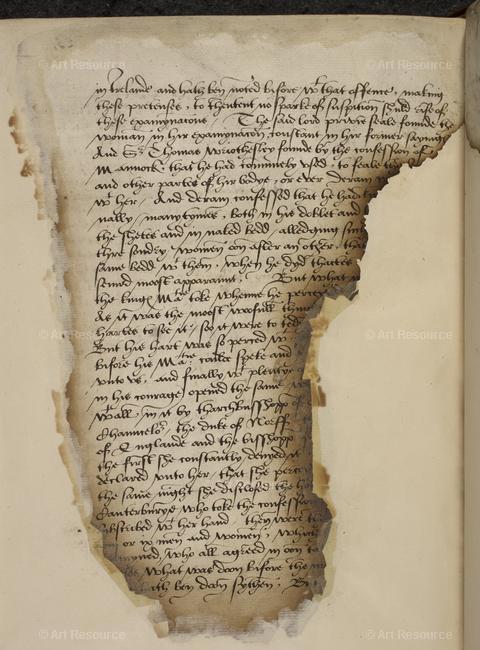 in Irelande and hath ben noted before wt that offence, making
these pretenses, to thentent no sparke of suspition shuld rise of
these examynacons. The said lord privie seale founde the
woman in hir examynacon constant in hir former sayings
And Sr Thomas Wriothesley founde by the confession of
Mannock, that he had commenly used, to feale the
and other partes of hir bodye, or ever deram
wt her, And deram confessed that he had
nally, many tymes, both in his doblet and
the shetes and in naked bedd, alledging
thre sondry women oon after an other, that
same bedd wt them, when he dyd
semed moost apparaunt, But what
the kings Mate toke whenne he
As it was the moost wofull
hartes to see it, so it were to
But his hart was so perced wt
before his Mate coulde speke and
unto us, and fynally wt plentye
in his courage opened the same
wtall, in it by tharchbusshopp of
Channcelor, the duke of Norff
of Englande and the bisshopp
the first she constantly denyed it
declared unto her, that she
the same night she disclosed the
Canterburye who toke the confession
subscribed wt her hand, then were
or men and women,
who all agreed in oon
what was doon before the
hath ben doon sythen,
© Art Resource
© Art Resource
© Art Resource
© Art Resource
© Art Resource
© Art Resource